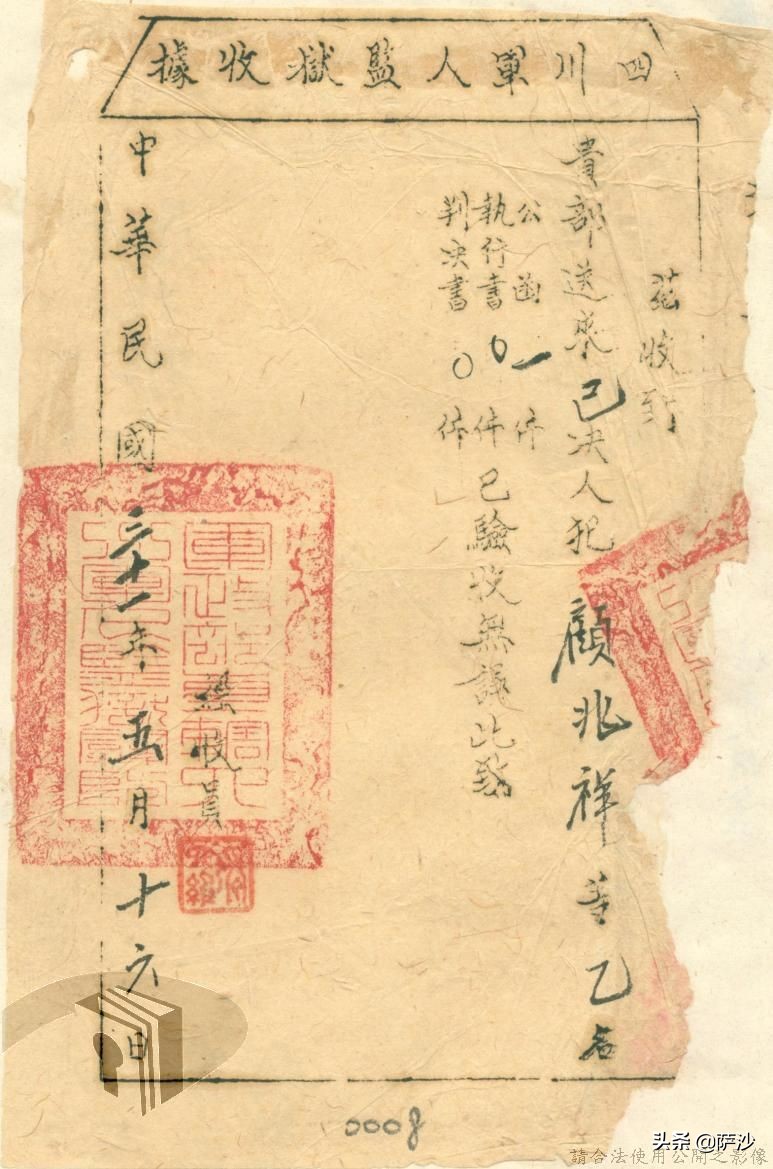 四川軍人監獄收據
茲收到
貴部送來已決人犯顧兆祥等乙名
公函一件
執行書0件
判決書0件
已驗收無誤此致
點收員
中華民國三十一年五月十六日
0008
头条 @萨沙
請合法使用公開之影像